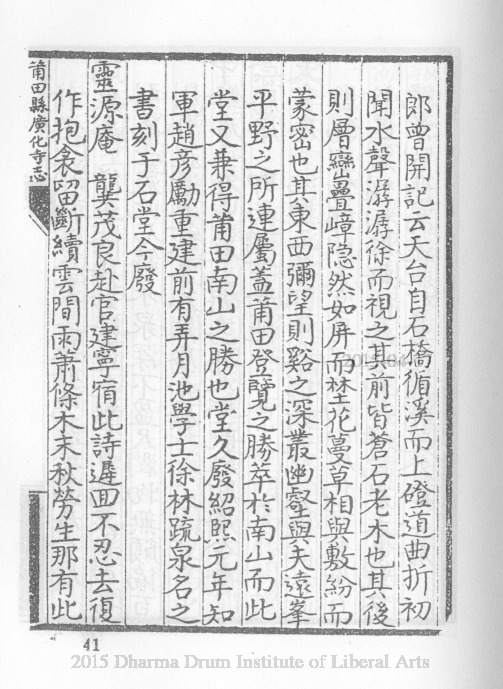 郎曾開記云天台自石橋循溪而上磴道曲折初
聞水聲潺潺徐而視之其前皆蒼石老木也其後
則層巒疊嶂隐然如屏而埜花蔓草相與敷紛而
蒙密也其東西彌望則谿之深叢幽壑與夫遠峯
平野之所連屬蓋莆田登覽之勝萃於南山而此
堂又兼得莆田南山之勝也堂久廢紹熙元年知
軍趙彥勵重建前有弄月池學士徐林疏泉名之
書刻于石堂今廢
靈源庵 龔茂良赴官建寧宿此詩遲回不忍去復
作抱衾留斷續雲間雨蕭條木末秋勞生那有此
莆田縣廣化寺志
41
2015 Dharma Drum Institute of Liberal Arts